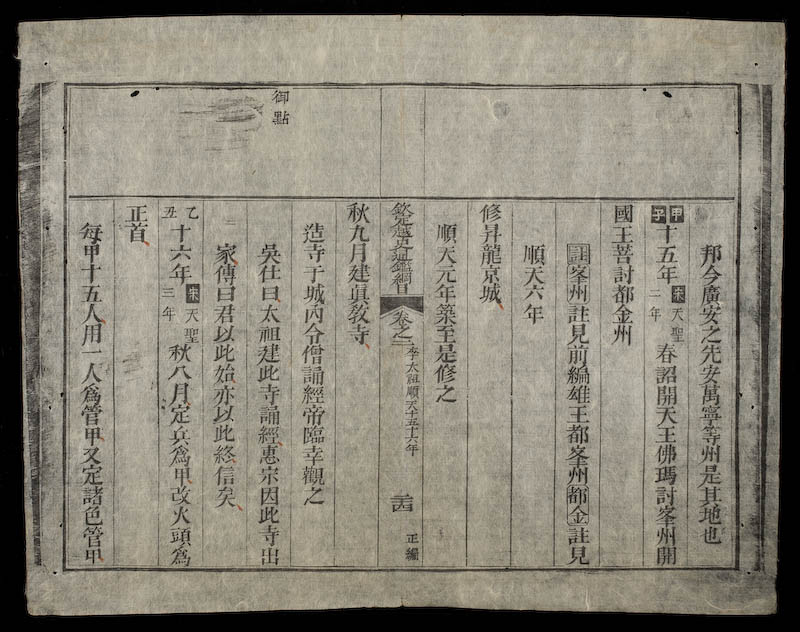 邦今廣安之先安萬寧等州是其地也
甲子十五年宋天聖二年春詔開天王佛瑪討峯州開
國王菩討都金州
註峯州註見前編雄王都峯州都金註見
順天六年
修昇龍京城
順天元年築至是修之
欽定越史通鑑綱目 卷之二 李太祖順天十五十六年 二十四 正編
秋九月建眞教寺
造寺于城內令僧誦經帝臨幸觀之
御點
吳仕曰太祖建此寺誦經惠宗因此寺出
家傳曰君以此始亦以此終信矣
乙丑十六年宋天聖三年秋八月定兵爲甲改火頭爲
正首
每甲十五人用一人爲管甲又定諸色管甲